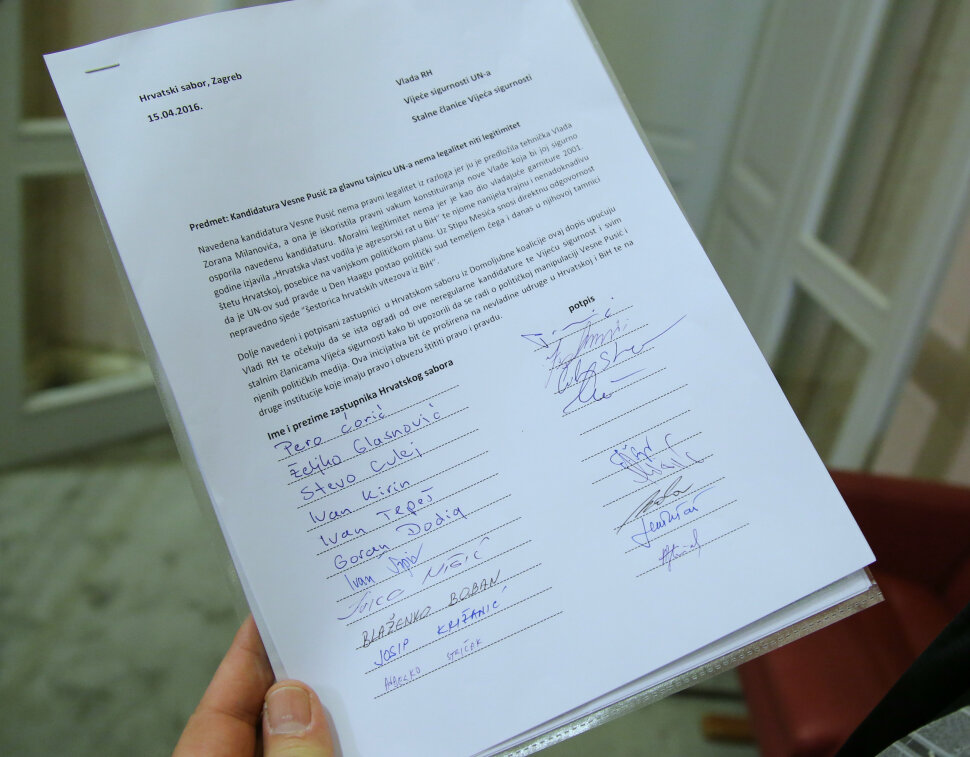 Hrvatski sabor, Zagreb
15.04.2016.
Vlada RH
Vijeće sigurnosti UN-a
Stalne članice Vijeća sigurnosti
Predmet: Kandidatura Vesne Pusić za glavnu tajnicu UN-a nema legalitet niti legitimitet
Navedena kandidatura Vesne Pusić nema pravni legalitet iz razloga jer ju je predložila tehnička Vlada
Zorana Milanovića, a ona je iskoristila pravni vakum konstituiranja nove Vlade koja bi joj sigurno
osporila navedenu kandidaturu. Moralni legitimitet nema jer je kao dio vladajuće garniture 2001.
godine izjavila „Hrvatska vlast vodila je agresorski rat u BiH" te njome nanijela trajnu i nenadoknadivu
štetu Hrvatskoj, posebice na vanjskom političkom planu. Uz Stipu Mesića snosi direktnu odgovornost
da je UN-ov sud pravde u Den Haagu postao politički sud temeljem čega i danas u njihovoj tamnici
nepravedno sjede "šestorica hrvatskih vitezova iz BiH".
Dolje navedeni i potpisani zastupnici u Hrvatskom saboru iz Domoljubne koalicije ovaj dopis upućuju
Vladi RH te očekuju da se ista ogradi od ove neregularne kandidature te Vijeću sigurnost i svim
stalnim članicama Vijeća sigurnosti kako bi upozorili da se radi o političkoj manipulaciji Vesne Pusić i
njenih političkih medija. Ova inicijativa bit će proširena na nevladine udruge u Hrvatskoj i BiH te na
druge institucije koje imaju pravo i obvezu štititi pravo i pravdu.
Ime i prezime zastupnika Hrvatskog sabora
potpis
Pero Ćorić
Željko Glasnović
Stevo Culej
Ivan Kirin
Ivan Tepeš
Goran Dodig
Ivan
BLAŽENKO BOBAN
JOSIP KRIŽANIĆ
STRIČAK